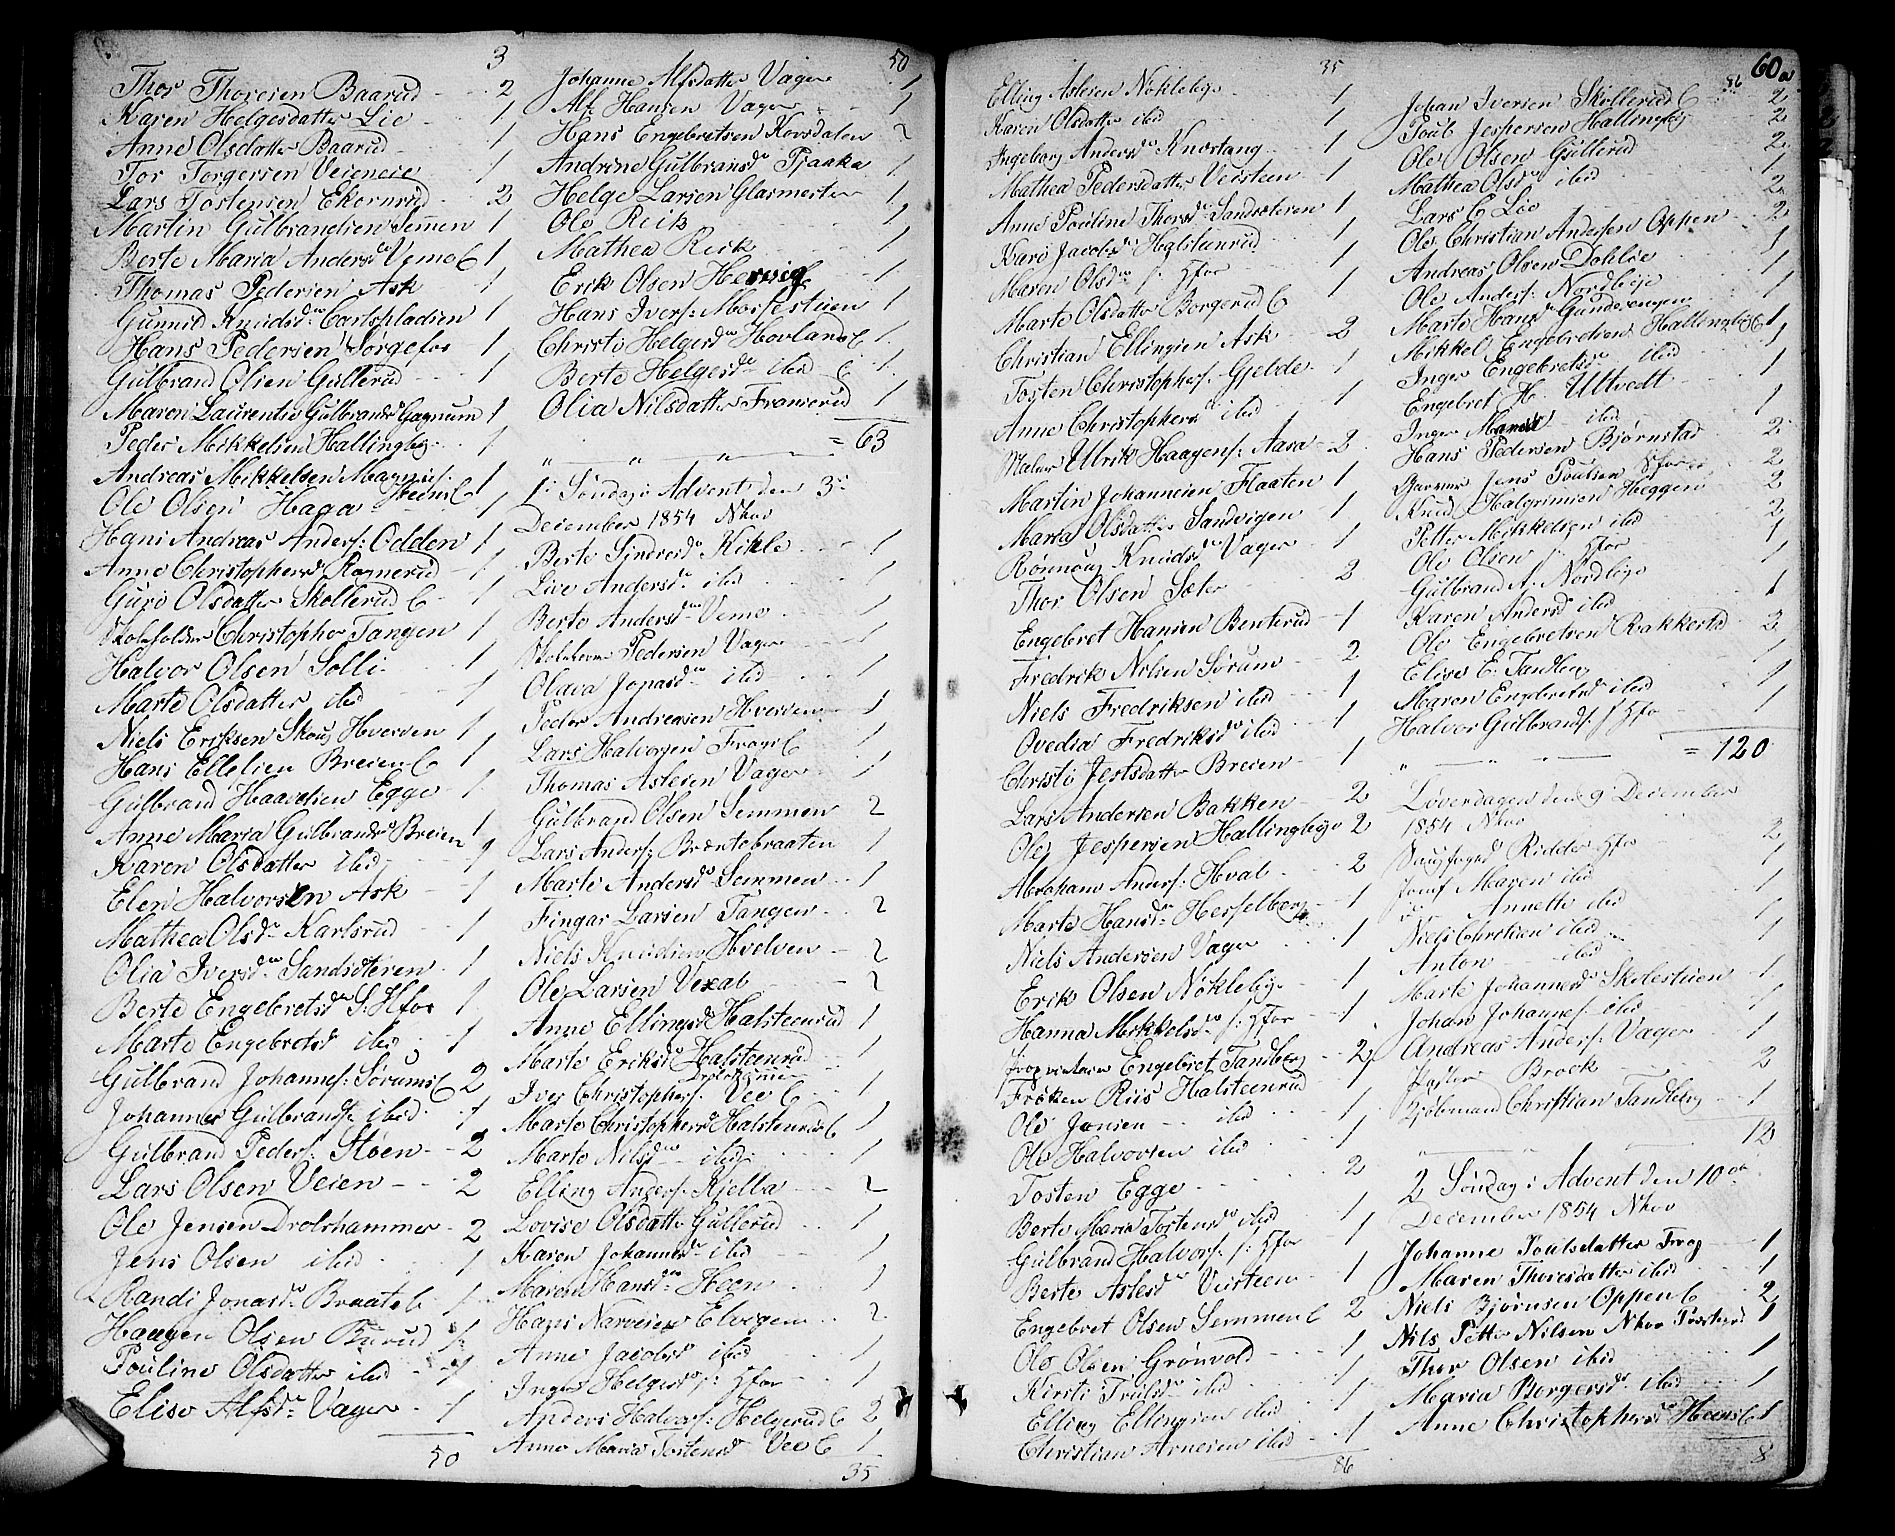 3
Thor Thoresen Baarud 2
Karen Helgesdatter Lie 1
Anne Olsdatter Baarud 1
Tor Torgersen Veieneie 1
Lars Tostensen Ekornrud 2
Martin Gulbrandsen Semmen 1
Berte Maria Andersd Vemo E 1
Thomas Pedersen Ask 1
Gunnild Knudsd Carlspladsen 1
Hans Pedersen Sorgefos 1
Gulbrand Olsen Gullerud 1
Maren Laurentse Gulbrandsd Gagnum 1
Peder Mikkelsen Hallingby 1
Andreas Mikkelsen Heens E 1
Ole Olsen Haga 1
Hans Andreas Anders: Odden 1
Anne Christophersd Ragnerud 1
Guro Olsdatter Skollerud E 1
Skoleholder Christopher Tangen 1
Halvor Olsen Solli 1
Marte Olsdatter ibid 1
Niels Eriksen Skoug Hverven 1
Hans Ellefsen Breien E 1
Gulbrand Haavelsen Egge 1
Anne Maria Gulbrandsd Breien 1
Karen Olsdatter ibid 1
Elen Halvorsen Ask 1
Mathea Olsd Karlsrud 1
Olia Iversd Sandsæteren 1
Berte Engebretsd S: Hfos 1
Marte Engebretsd ibid 1
Gulbrand Johannes: Sørums E 2
Johannes Gulbrands: ibid 1
Gulbrand Peders: Støen 2
Lars Olsen Veien 2
Ole Jensen Drolshammer 2
Jens Olsen ibid 1
Randi Jonasd Braate E 1
Haagen Olsen Burud 1
Pouline Olsdatter ibid 1
Elise Alfsd Vager 1
50
50
Johanne Alfsdatter Vager 1
Alf Hansen Vager 1
Hans Engebretsen Korsdalen 2
Andrine Gulbransd Pjaaka 1
Helge Larsen Glasmester 1
Ole Reik 1
Mathea Reik 1
Erik Olsen Hervig 1
Hans Ivers: Morsestuen 1
Christi Helgesd Hovland E 1
Berte Helgesd ibid E 1
Olia Nilsdatter Framrud 1
= 63
1: Søndag i Advent den 3
December 1854 Nhov
Berte Sindresd Kikle 1
Live Andersd ibid 1
Berte Andersd Vemo 1
Skolelærer Pedersen Vager 1
Olava Jonasd ibid 1
Peder Andreasen Hverven 1
Lars Halvorsen Frogs E 1
Thomas Aslesen Vager 1
Gulbrand Olsen Semmen 2
Lars Anders: Bræntebraaten 1
Marte Andersd Semmen 1
Fingar Larsen Tangen 2
Niels Knudsen Hvelven 2
Ole Larsen Vexal 2
Anne Ellingsd Halsteenrud 1
Marte Eriksd Halsteenrud 1
Iver Christophers: Vee E 1
Marte Christophersd Halsteenrud E 1
Marte Nilsd ibid 1
Elling Anders: Kjella 2
Lovise Olsdatter Gullerud 1
Karen Johannesd ibid 1
Maren Hansd Heen 1
Hans Narvesen Elvigen 2
Anne Jacobsd ibid 1
Inger Helgesd S: Hfos 1
Anders Halvors: Helgerud E 2
Anne Maria Tostensd Vee E 1
35
35
Elling Aslesen Nøkleby 1
Karen Olsdatter ibid 1
Ingeborg Andersd Knestang 1
Mathea Pedersdatter Veisteen 1
Anne Pouline Thorsd Sandsæteren 1
Kari Jacobsd Halsteenrud 1
Maren Olsd S: Hfos 1
Marte Olsdatter Borgerud E
Christian Ellingsen Ask 2
Tosten Christophers: Gjelde 1
Anne Christophersd ibid 1
Maler Ulrik Haagens: Aasa 2
Martin Johannesen Flaaten 1
Maria Olsdatter Sandvigen 1
Rønnoug Knudsd Vager 1
Thor Olsen Sæter 2
Engebret Hansen Benterud 1
Fredrik Nilsen Sørum 2
Niels Fredriksen ibid 1
Ovedia Fredriksd ibid 1
Christi Jensdatter Breien 1
Lars Andersen Bakken 2
Ole Jespersen Hallingby 2
Abraham Anders: Hval 2
Marte Hansd Hesselberg 1
Niels Andersen Vager 1
Erik Olsen Nøkleby 1
Hanna Mikkelsd S: Hfos 1
Proprietær Engebret Tandberg 2
Frøken Riis Halsteenrud 1
Ole Jonsen ibid 1
Ole Halvorsen ibid 1
Tosten Egge 2
Berte Maria Tostensd ibid 1
Gulbrand Halvors: S: Hfos 1
Berte Aslesd Veisteen 1
Engebret Olsen Semmen E 2
Ole Olsen Grønvold 1
Kirsti Trulsd ibid 1
Elling Ellingsen ibid 1
Christian Arnesen ibid 1
86
60 a
86
Johan Iversen Skollerud E 2
Poul Jespersen Hallingby 2
Ole Olsen Gullerud 2
Mathea Olsd ibid 1
Lars E Lie 2
Ole Christian Andersen Oppen 2
Andreas Olsen Dahlsie 1
Ole Anders: Nordbye 1
Marte Hansd Gundersengen 1
Mikkel Engebretsen Hallingby E 1
Inger Engebretsd ibid 1
Engebret H. Ultvedt 1
Inger ibid 1
Hans Pedersen Bjørnstad 2
Garver Jens Poulsen Hfos 2
Knud Halgrimsen Heggen 2
Petter Mikkelsen ibid 2
Ole Olsen S: Hfos 1
Gulbrand A: Nordbye 1
Karen Andersd ibid 1
Ole Engebretsen Rakkestad 2
Elise E. Tandberg 1
Maren Engebretsd ibid 1
Halvor Gulbrands: S: Hfos 1
= 120
Løverdagen den 9 December
1854 Nhov
Saugfoged Ridder Hfos 2
Jomf Maren ibid 1
do Annette ibid 1
Niels Christian ibid 1
Anton ibid 1
Marte Johannesd Skolestuen 1
Johan Johannes: ibid 1
Andreas Anders: Vager 1
Pastor Brock 2
Kjøbmand Christian Tandberg 1
12
2 Søndag i Advent den 10de
December 1854 Nhov
Johanne Poulsdatter Frog 1
Maren Thoresdatter ibid 1
Niels Bjørnsen Oppen E 2
Nils Petter Nilsen Nhov Præstgrd 1
Thor Olsen ibid 1
Maria Borgersd ibid 1
Anne Christophersd Heens E 1
8